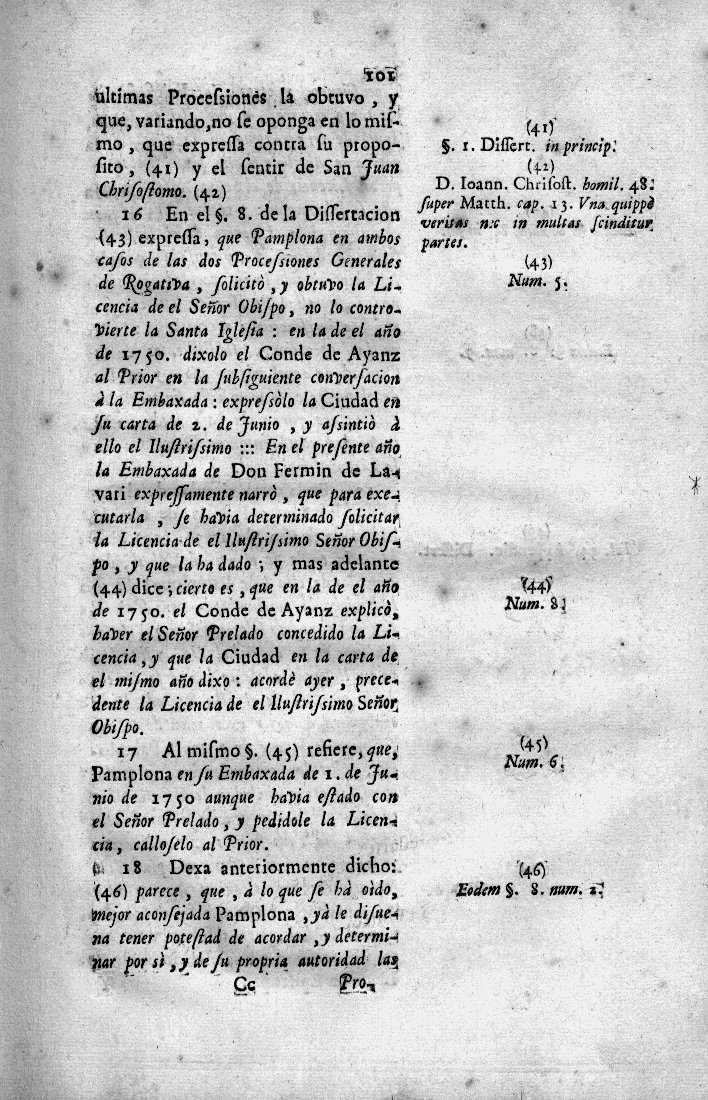 101
ultimas Processiones la obtuvo, y
que, variando, no se oponga en lo mis-
mo, que expressa contra su propo-
sito, (41) y el sentir de San Juan
Chrisostomo. (42)
16 En el §. 8. de la Dissertacion
(43) expressa, que Pamplona en ambos
casos de las dos Processiones Generales
de Rogativa, solicitò, y obtuvo la Li-
cencia de el Señor Obispo, no lo contro-
vierte la Santa Iglesia: en la de el año
de 1750. dixolo el Conde de Ayanz
al Prior en la subsiguiente conversacion
à la Embaxada: expressòlo la Ciudad en
su carta de 2. de Junio, y assintiò à
ello el Ilustrissimo ::: En el presente año
la Embaxada de Don Fermin de La-
vari expressamente narrò, que para exe-
cutarla, se havia determinado solicitar
la Licencia de el Ilustrissimo Señor Obis-
po, y que la ha dado; y mas adelante
(44) dice; cierto es, que en la de el año
de 1750. el Conde de Ayanz explicò,
haver el Señor Prelado concedido la Li-
cencia, y que la Ciudad en la carta de
el mismo año dixo: acordè ayer, prece-
dente la Licencia de el Ilustrissimo Señor
Obispo.
17 Al mismo §. (45) refiere, que,
Pamplona en su Embaxada de 1. de Ju-
nio de 1750 aunque havia estado con
el Señor Prelado, y pedidole la Licen-
cia, calloselo al Prior.
18 Dexa anteriormente dicho:
(46) parece, que, à lo que se hà oìdo,
mejor aconsejada Pamplona, yà le disue-
na tener potestad de acordar, y determi-
nar por sì, y de su propria autoridad las
Cc Pro-
(41)
§. 1. Dissert. in princip.
(42)
D. Ioann. Chrisost. homil. 48.
super Matth. cap. 13. Vna quippè
veritas nec in multas scinditur
partes.
(43)
Num. 5.
(44)
Num. 8.
(45)
Num. 6.
(46)
Eodem §. 8. num. 2.